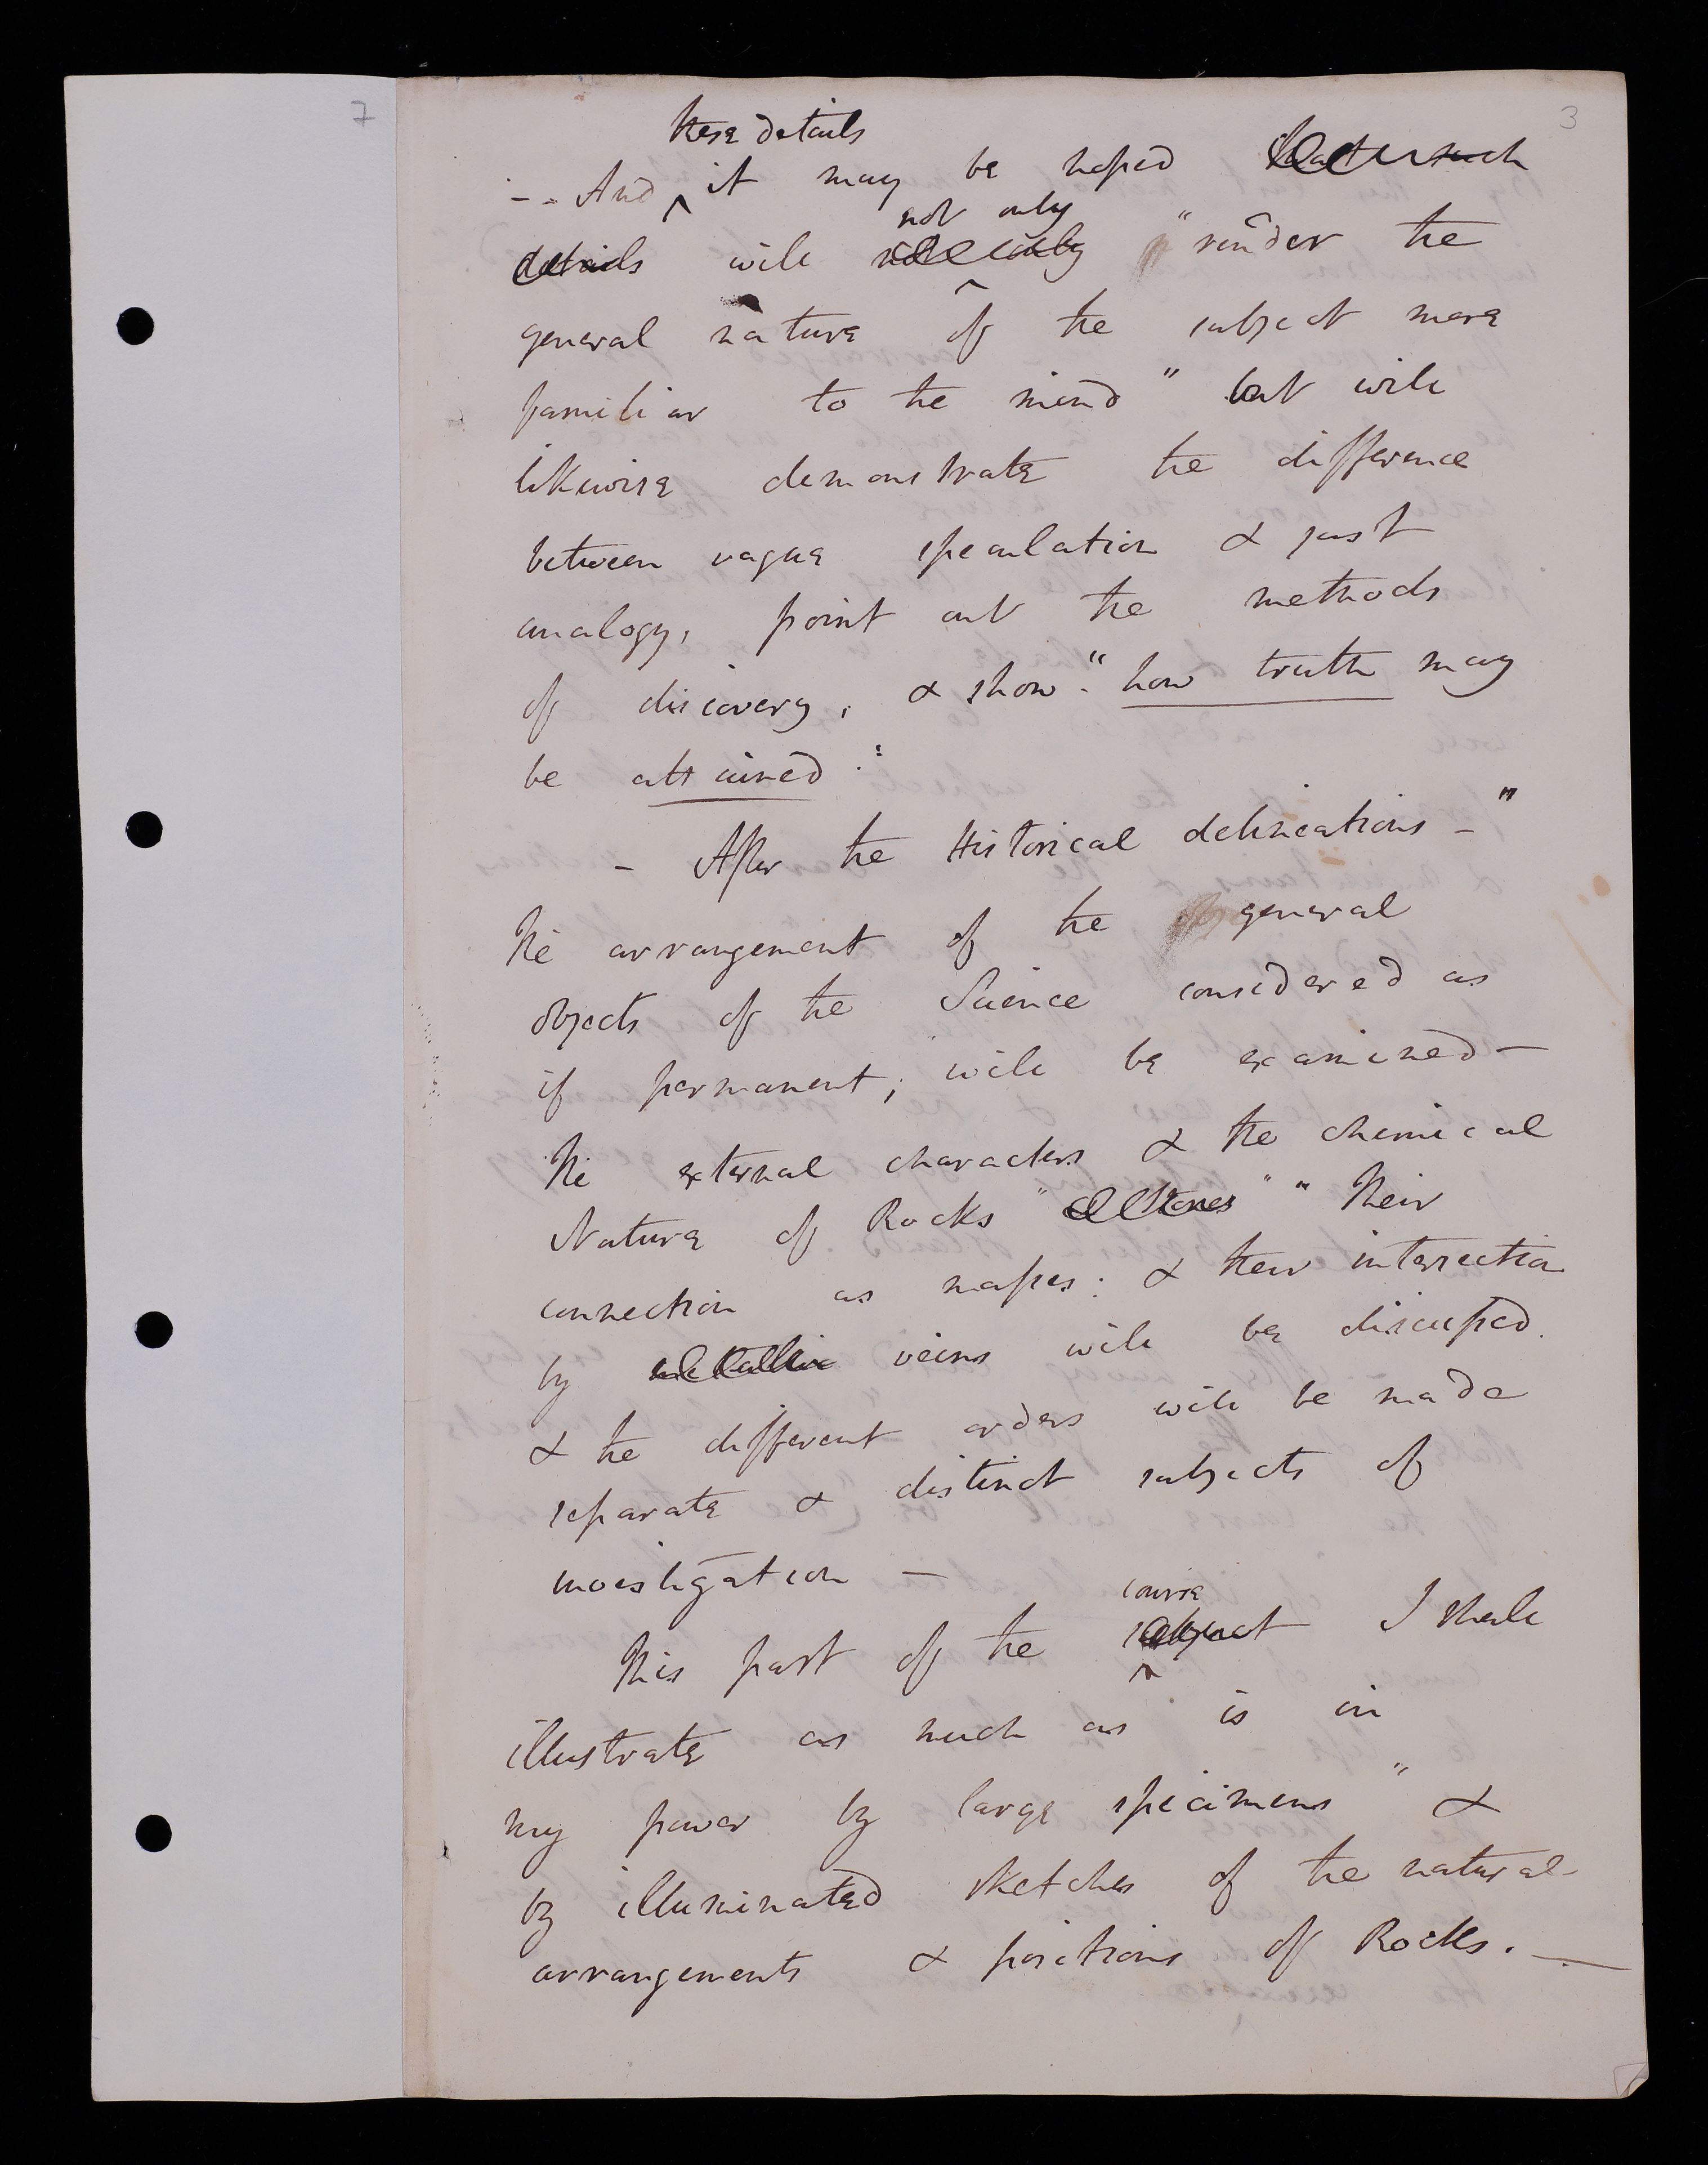 7
3
these details
-- And ^ it may be hoped that such
not only
details will not only " render the
general nature of the subject more
familiar to the mind " but will
likewise demonstrate the difference
between vague speculation & just
analogy, point out the methods
of discovery, & show " how truth may
be attained "
- After the Historical delineations - "
The arrangement of the general
objects of the Science considered as
if permanent; will be examined -
The external characters & the chemical
Nature of Rocks " & Stones " " Their
connection as masses: & their intersection
by metallic veins will be discussed.
& the different orders will be made
separate & distinct subjects of
investigation -
course
This part of the subject ^ I shall
illustrate as much as is in
my power by large specimens " &
by illuminated sketches of the natural
arrangements & positions of Rocks. -